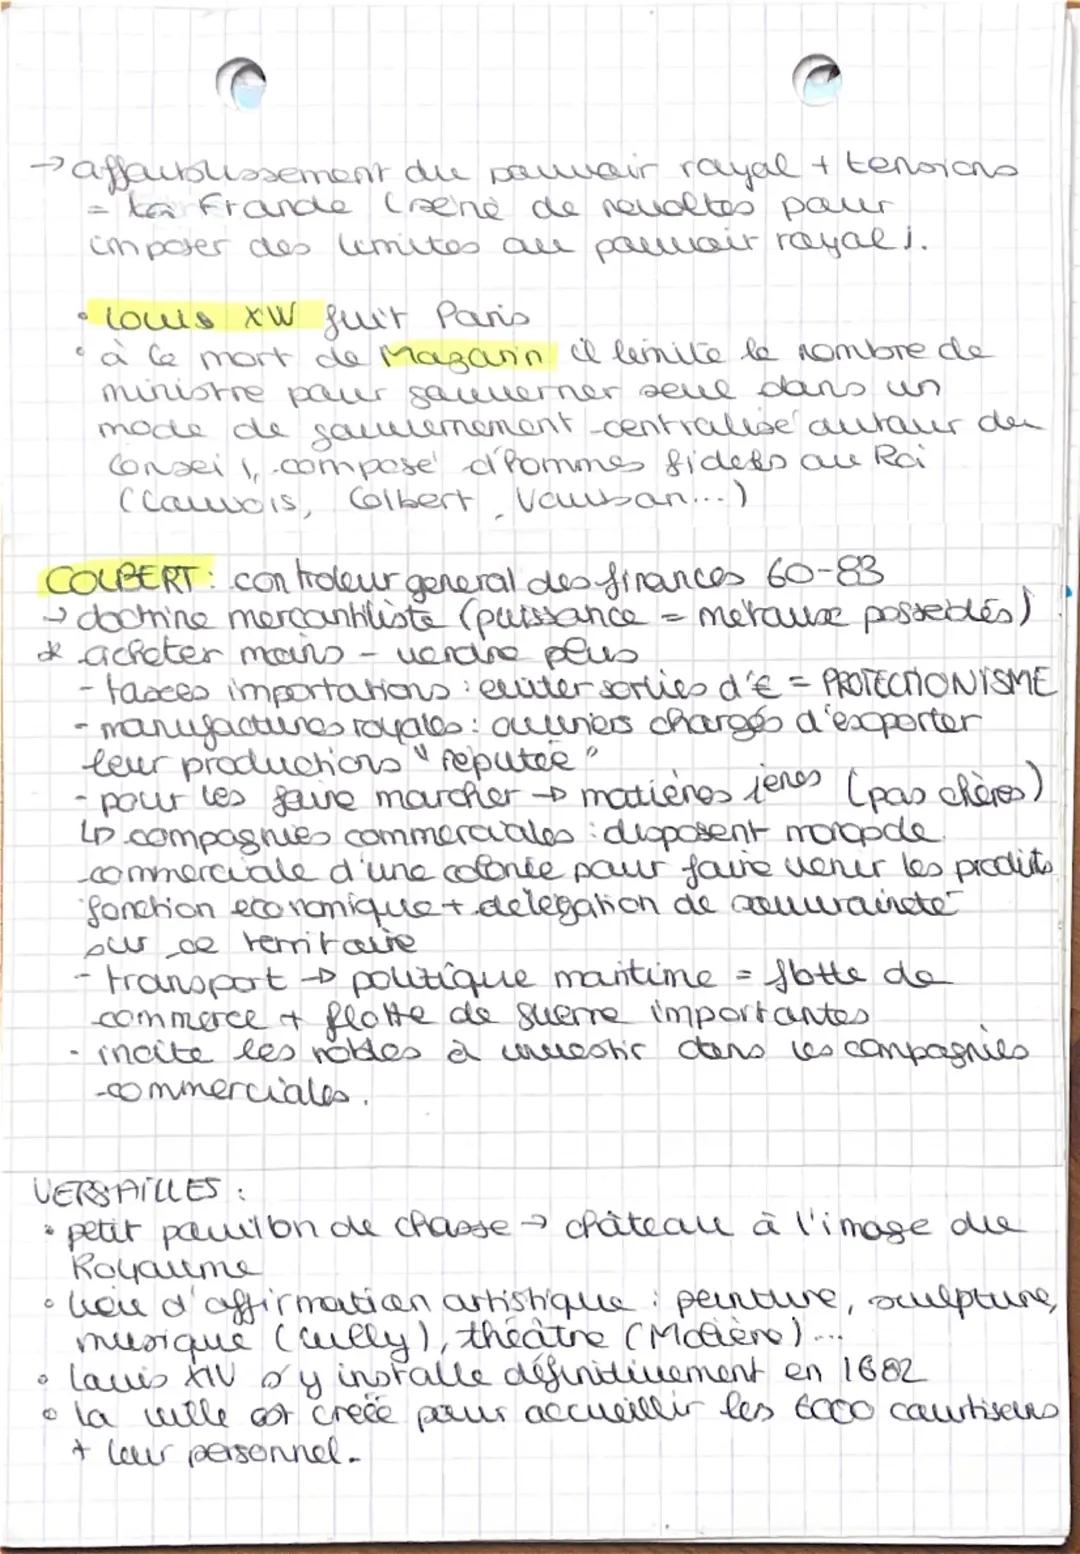 → affaiblissement du pouvoir royal + tensions
= la Fronde (série de révoltes pour
imposer des limites au pouvoir royal).
• Louis XIV fuit Paris
• à la mort de Mazarin il limite le nombre de
ministre pour gouverner seul dans un
mode de gouvernement centralisé autour du
Conseil, composé d'hommes fidèles au Roi
(Louvois, Colbert, Vauban...)
COLBERT : controleur general des finances 60-83
→ doctrine mercantiliste (puissance = métaux possédés)
* acheter moins - vendre plus
- taxes importations : éviter sorties d'€ = PROTECTIONISME
- manufactures royales : ouvriers chargés d'exporter
leur productions "réputée"
- pour les faire marcher → matières 1ères (pas chères)
↳ compagnies commerciales : disposent monopole
commerciale d'une colonie pour faire venir les produits
fonction economique + délégation de souveraineté
sur ce territoire
- transport → politique maritime = flotte de
commerce + flotte de guerre importantes
- incite les nobles à investir dans les compagnies
commerciales.
VERSAILLES :
• petit pavillon de chasse → château à l'image du
Royaume
• lieu d'affirmation artistique : peinture, sculpture,
musique (Lully), théâtre (Molière)...
• Louis XIV s'y installe définitivement en 1682
• la ville est créée pour accueillir les 6000 courtisans
+ leur personnel.